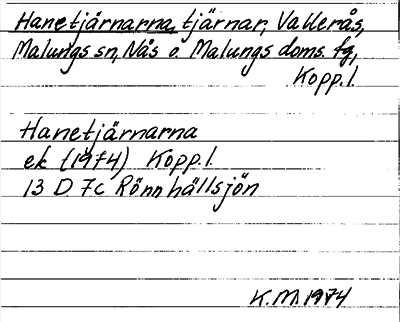 Hanetjärnarna, tjärnar, Vallerås,
Malungs sn, Nås o. Malungs doms. fg,
Kopp. l.
Hanetjärnarna
ek (1974) Kopp. l.
13 D 7c Rönnhällsjön
K.M. 1974